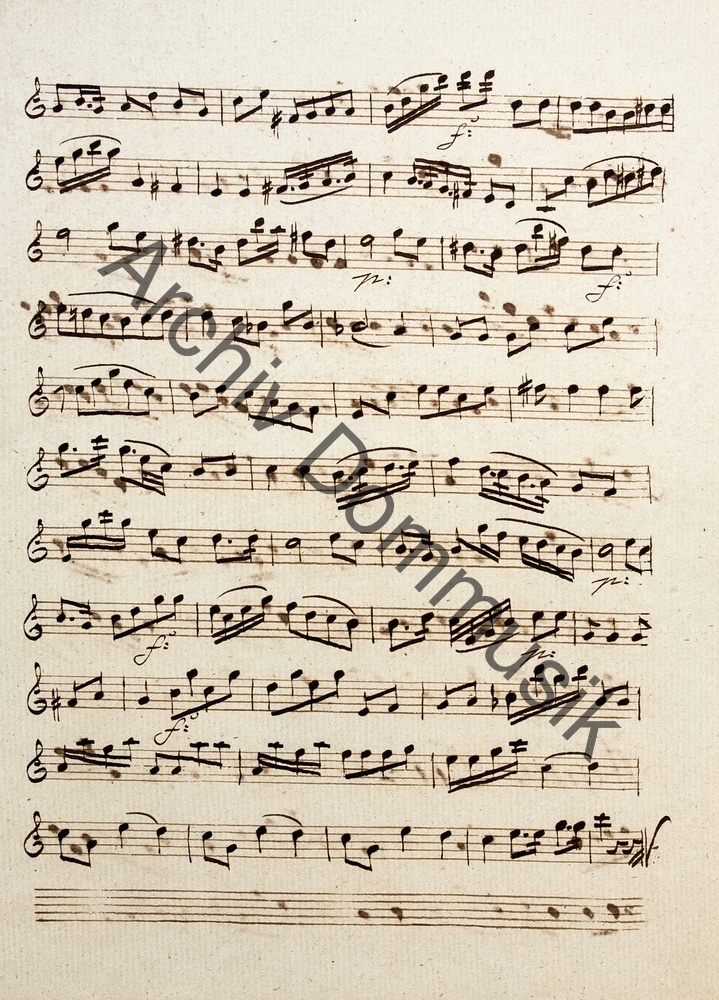 f:
p:
f:
p:
f:
p:
f:
Archiv Dommusik